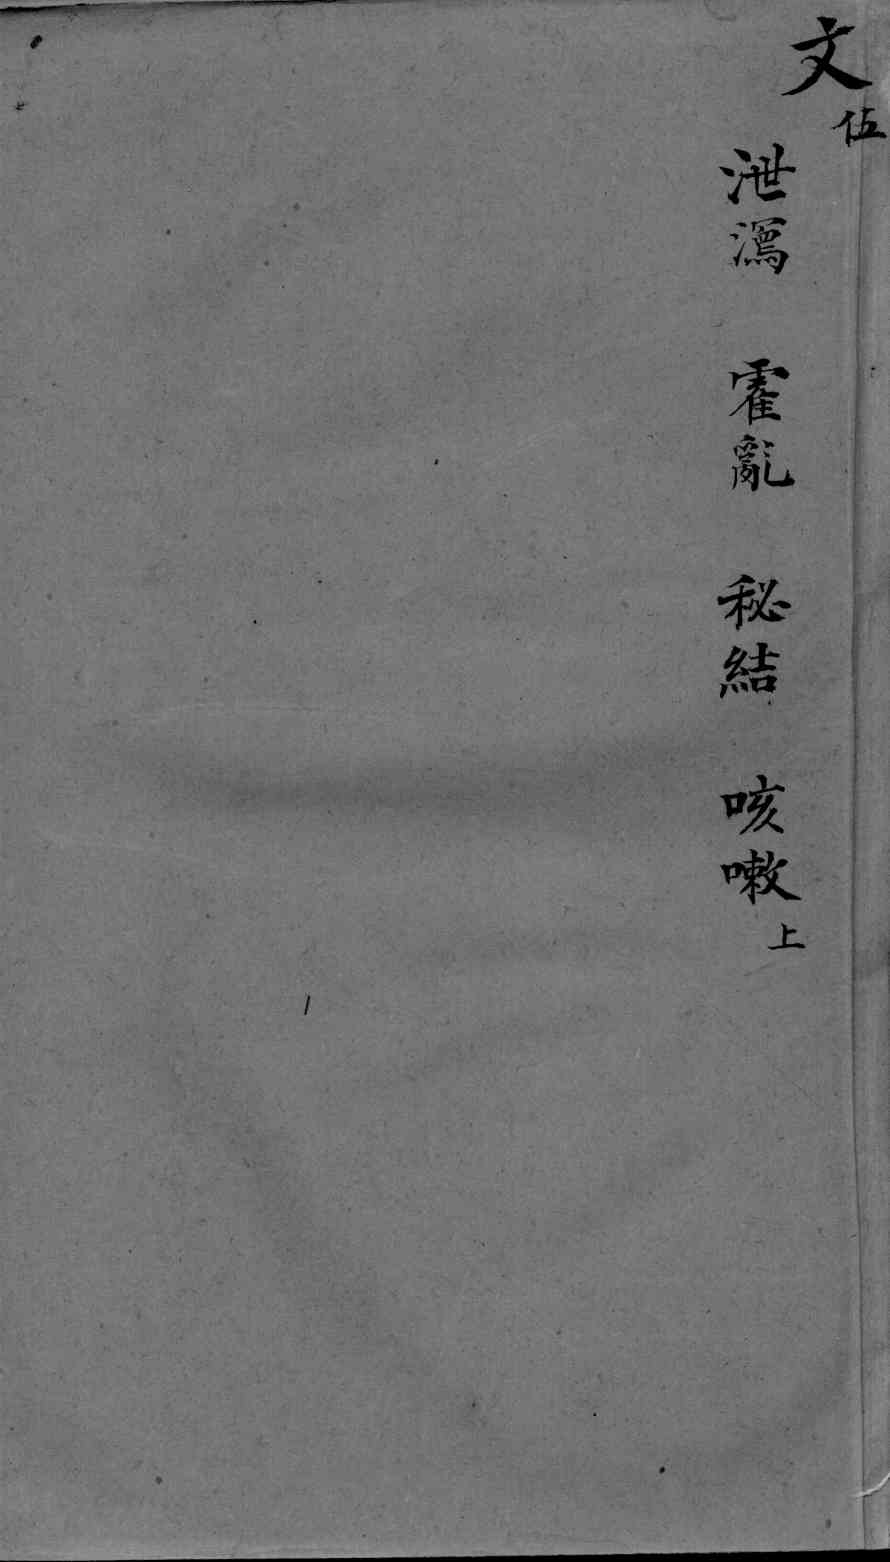 文
伍
泄瀉 霍亂 秘結 咳嗽
上